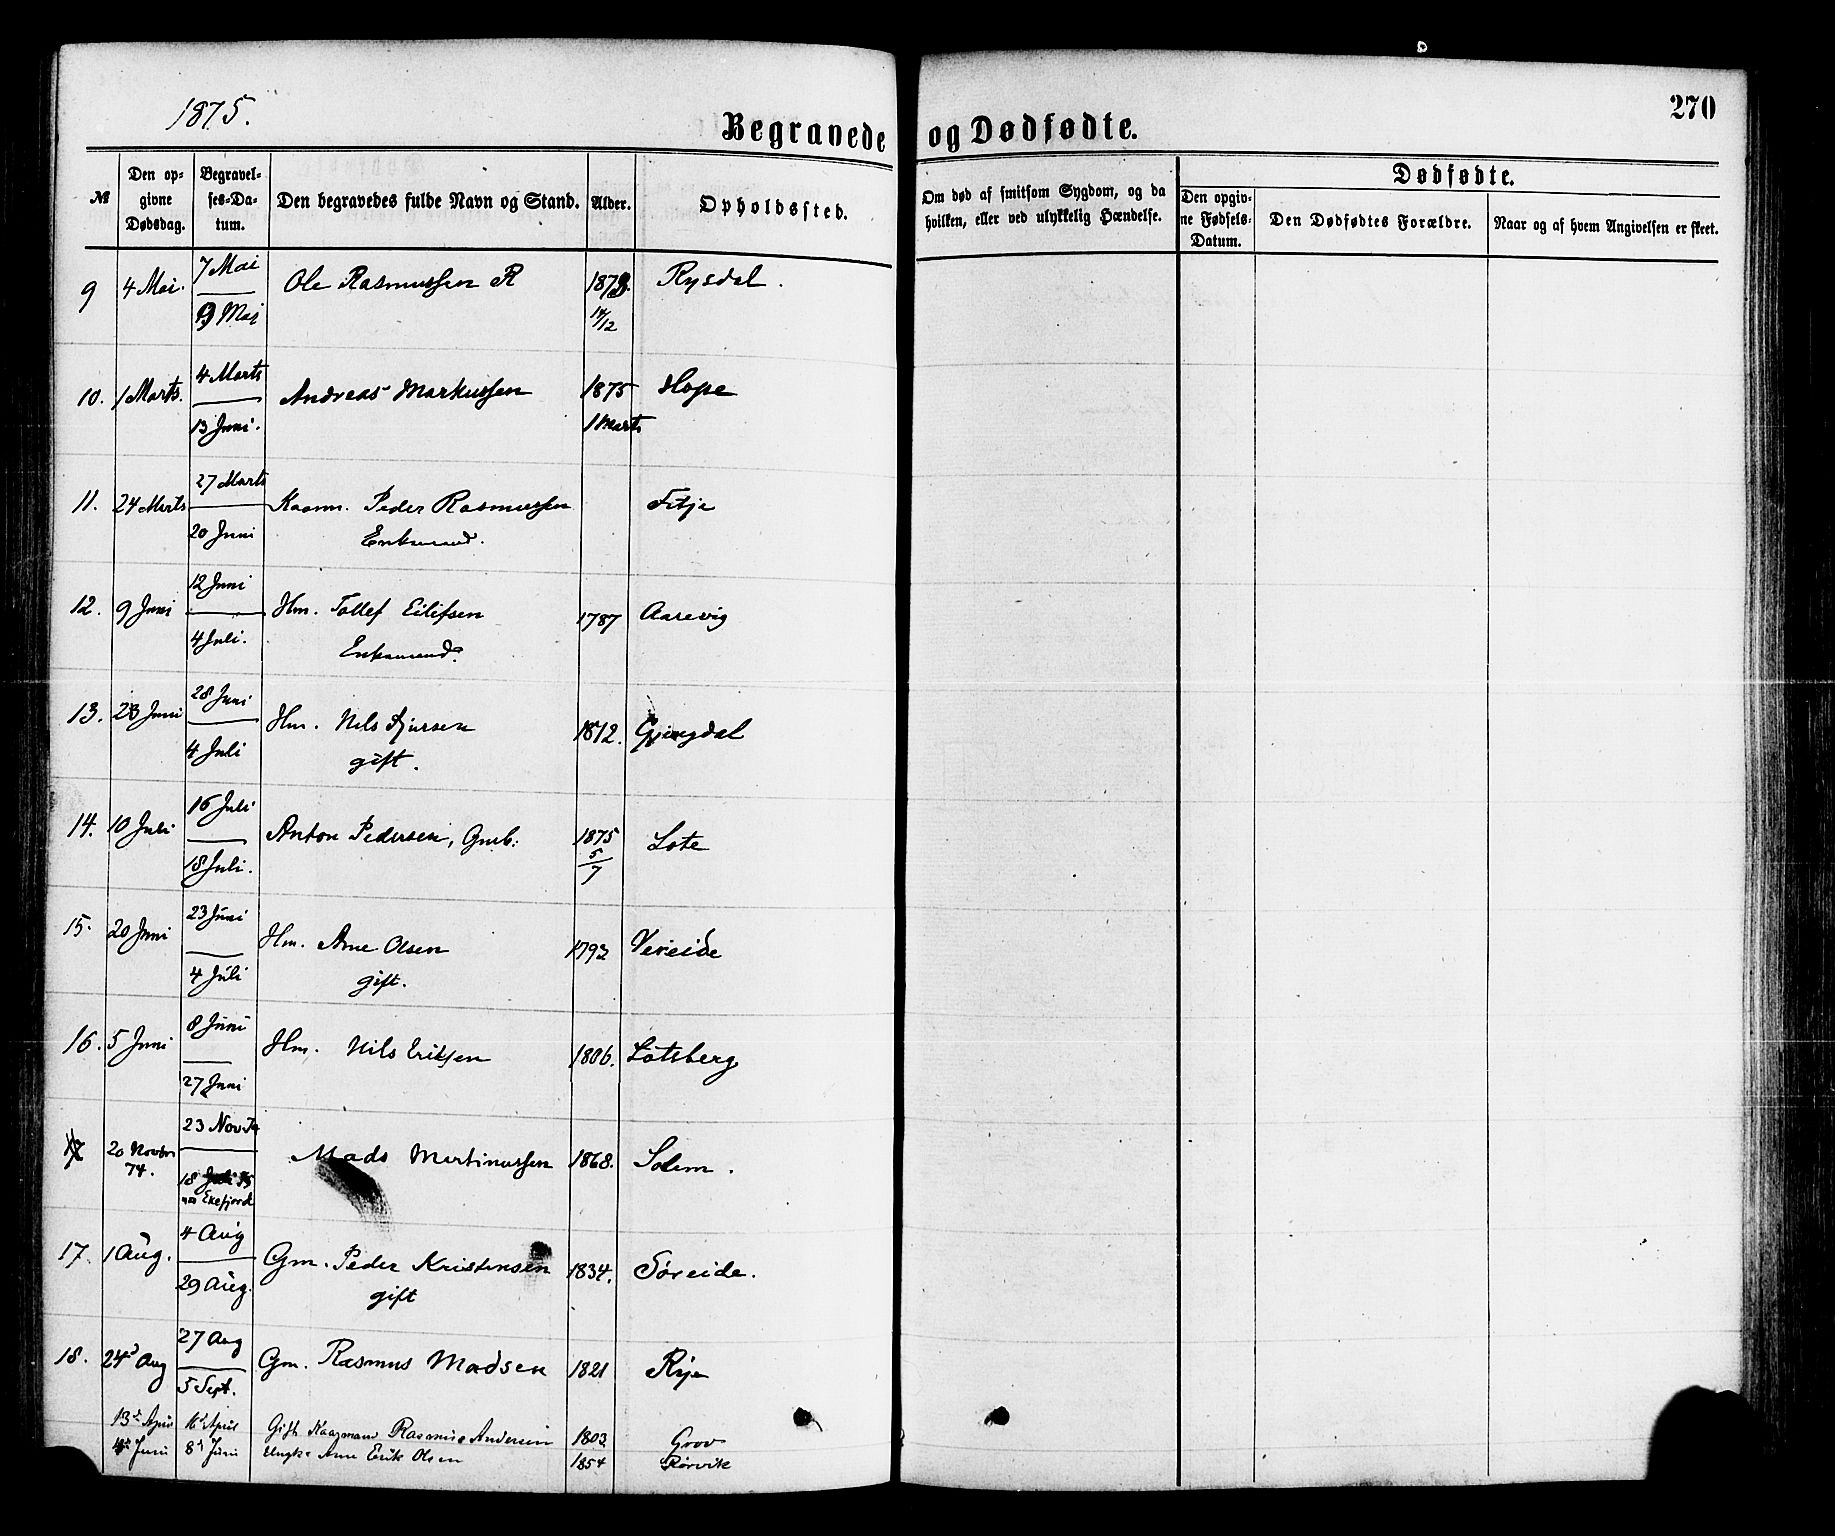 1875.
270
Begravede og Dødfødte.
№ Den opgivne Dødsdag. Begravelses-Datum. Den begravedes fulde Navn og Stand. Alder. Opholdssted. Om død af smitsom Sygdom, og da hvilken, eller ved ulykkelig Hændelse. Dødfødte. Den opgivne Fødsels-Datum. Den Dødfødtes Forældre. Naar og af hvem Angivelsen er skeet.
9 4 Mai. 7 Mai Ole Rasmussen R 1873. Rysdal.
9 Mai 14/12
10. 1 Marts. 4 Marts Andreas Markussen 1875 Hope
13 Juni. 1 Marts
11. 24 Marts 27 Marts Kaarm. Peder Rasmussen Fitje
20 Juni Enkemand.
12. 9 Juni 12 Juni Hm. Tollef Eilifsen 1787 Aarevig
4 Juli. Enkemand.
13. 23 Juni 28 Juni Hm. Nils 1812. Gjengdal
4 Juli gift.
14. 10 Juli 16 Juli Anton Pedersen, Gmb. 1875 Lote
18 Juli. 5/7
15. 20 Juni 23 Juni Hm. Arne Olsen 1793 Vereide
4 Juli gift.
16. 5 Juni 8 Juni Hm. Nils Eriksen 1806. Lotsberg
27 Juni
17 20 Novbr 74. 23 Nov 74 Mads Martinussen 1868. Solem.
18 Juli 75
17. 1 Aug. 4 Aug Gm. Peder Kristensen 1834. Søreide.
29 Aug. gift
18. 24d Aug 27 Aug Gm. Rasmus Madsen 1821 Ryje
5 Sept.
13d April 16d April Gift Kaarmand Rasmus Andersen 1803 Grov
4d Juni 8d Juni Ungk. Arne Erik Olsen 1854 Rørvik